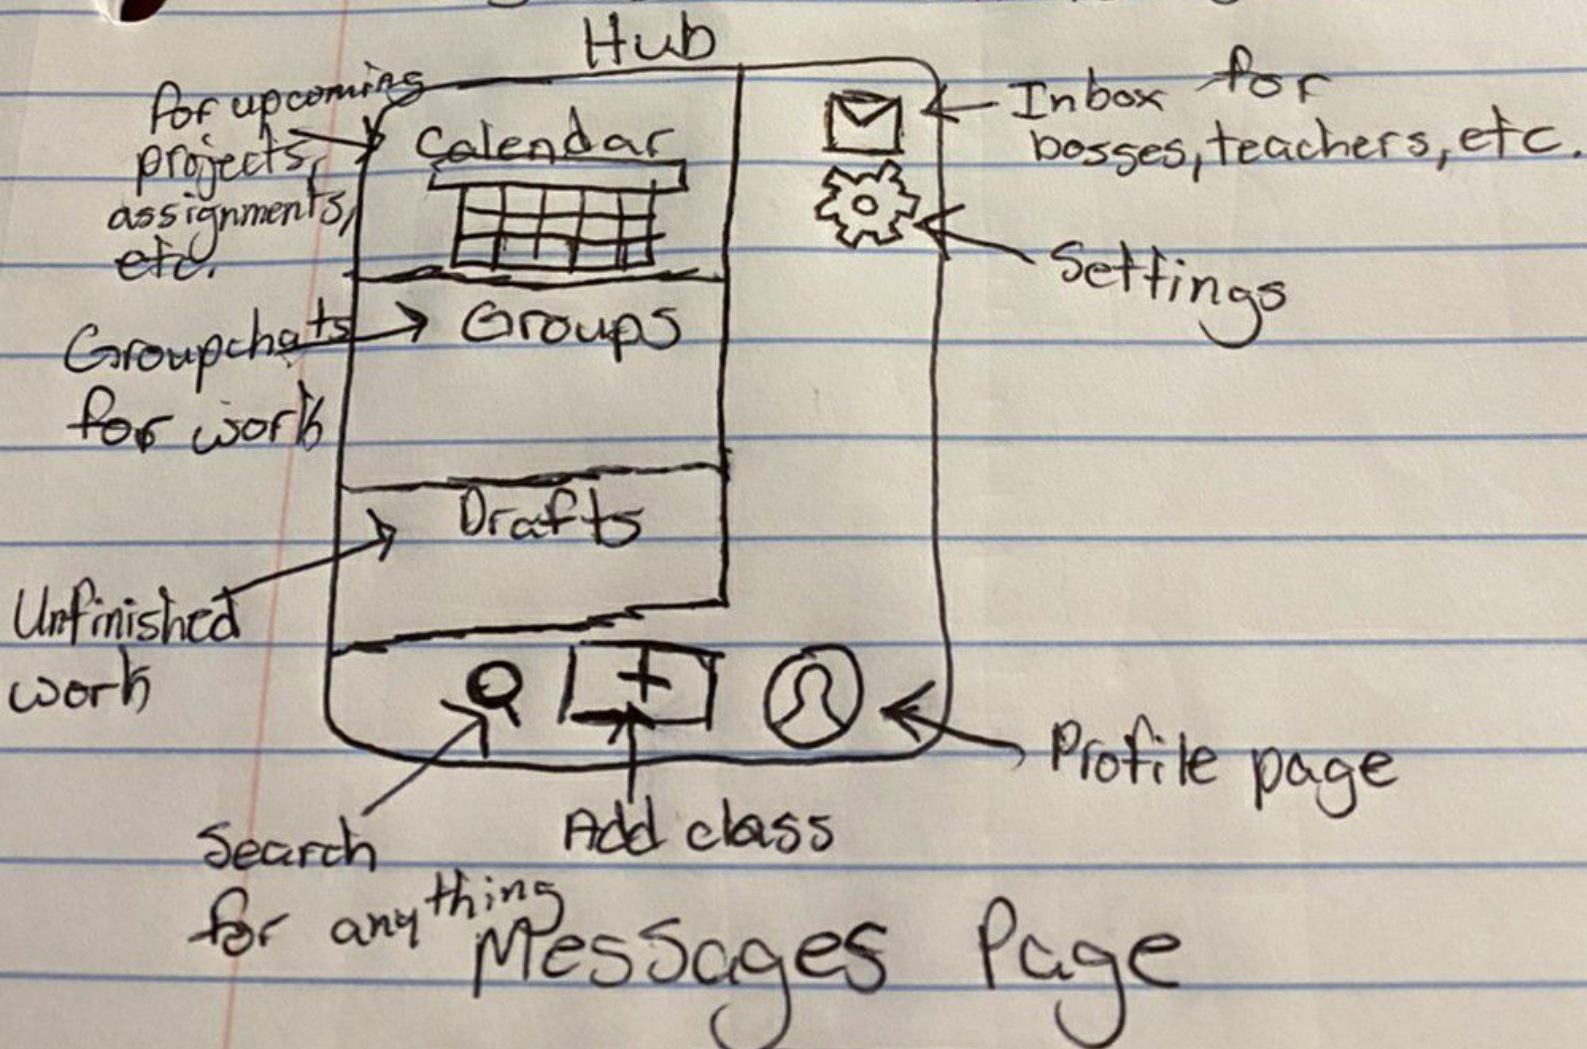 Hub
for upcoming
projects,
assignments,
etc.
Calendar
Inbox for
bosses, teachers, etc.
Settings
Groupchats
for work
Groups
Drafts
Unfinished
work
+
Profile page
Search
for anything
Add class
Messages Page